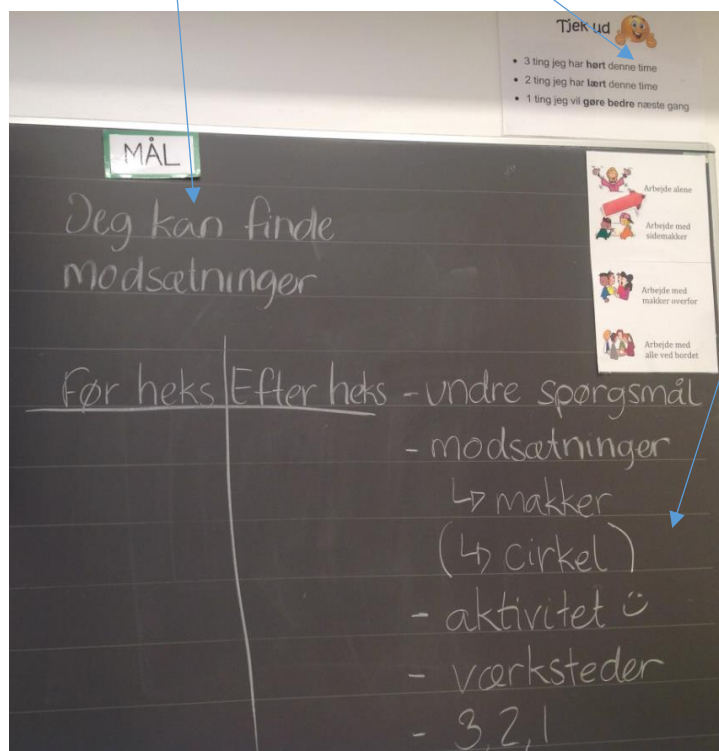 Tjek ud
• 3 ting jeg har hørt denne time
• 2 ting jeg har lært denne time
• 1 ting jeg vil gøre bedre næste gang
MÅL
Jeg kan finde
modsætninger
Arbejde alene
Arbejde med
sidemakker
Arbejde med
makker overfor
Arbejde med
alle ved bordet
Før heks Efter heks
- undre spørgsmål
- modsætninger
↳ makker
(↳ cirkel)
- aktivitet ☺
- værksteder
- 3,2,1